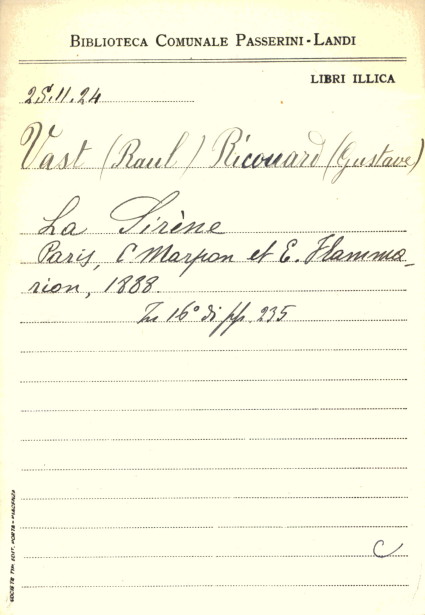 BIBLIOTECA COMUNALE PASSERINI-LANDI
LIBRI ILLICA
25.11.24
Vast (Raul) Ricouard (Gustave)
La Sirène
Paris, C Marpon et E. Flamma-
rion, 1888.
In 16° di pp. 235
C